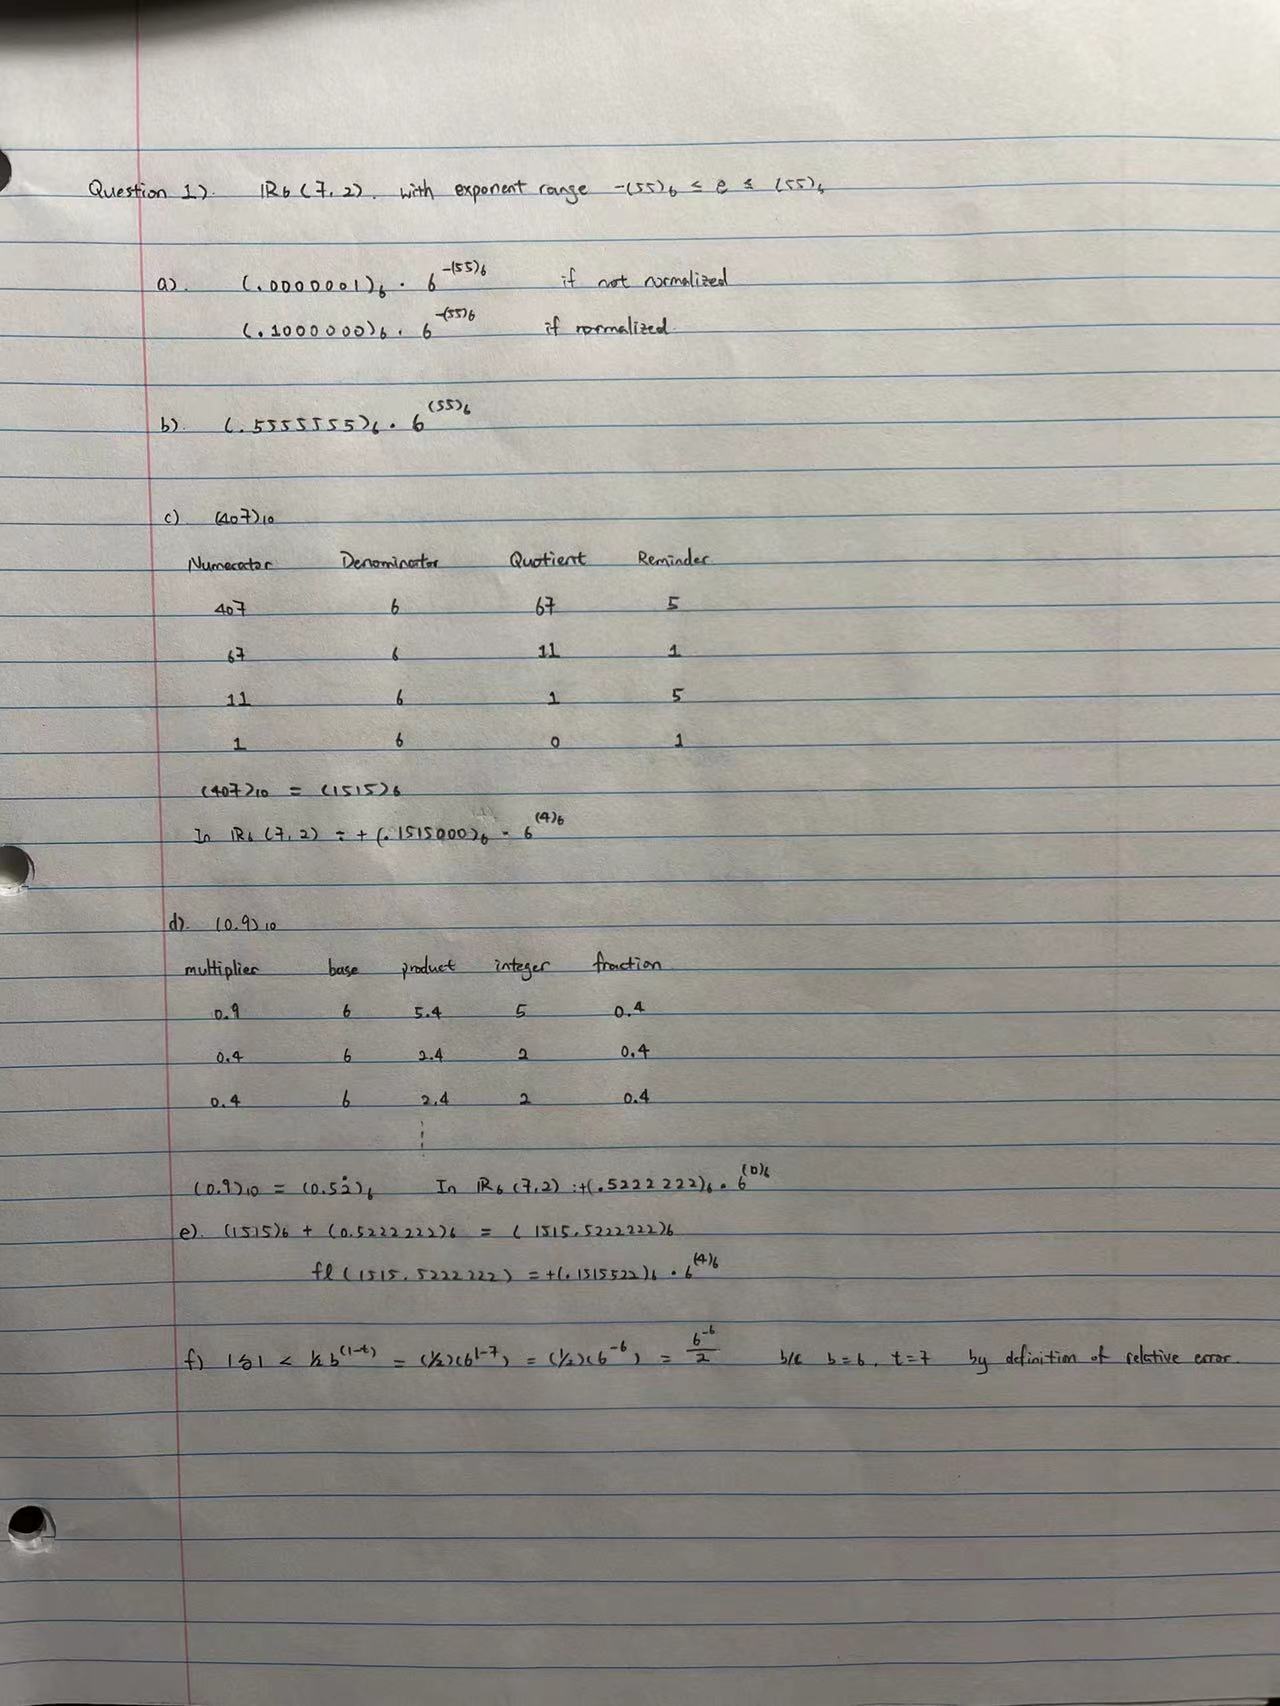 Question 1). ℝ6 (7,2). with exponent range -(55)6 ≤ e ≤ (55)6
a). (.0000001)6 · 6^-(55)6 if not normalized
(.1000000)6 · 6^-(55)6 if normalized.
b). (.5555555)6 · 6^(55)6
c) (407)10
Numerator Denominator Quotient Reminder
407 6 67 5
67 6 11 1
11 6 1 5
1 6 0 1
(407)10 = (1515)6
In ℝ6 (7,2) : + (.1515000)6 · 6^(4)6
d). (0.9)10
multiplier base product integer fraction
0.9 6 5.4 5 0.4
0.4 6 2.4 2 0.4
0.4 6 2.4 2 0.4
(0.9)10 = (0.52̇)6 In ℝ6 (7,2) : +(.5222222)6 · 6^(0)6
e). (1515)6 + (0.5222222)6 = (1515.5222222)6
fl (1515.5222222) = +(.1515522)6 · 6^(4)6
f) |δ| < ½ b^(1-t) = (½)(6^1-7) = (½)(6^-6) = 6^-6/2 b/c b=6, t=7 by definition of relative error.